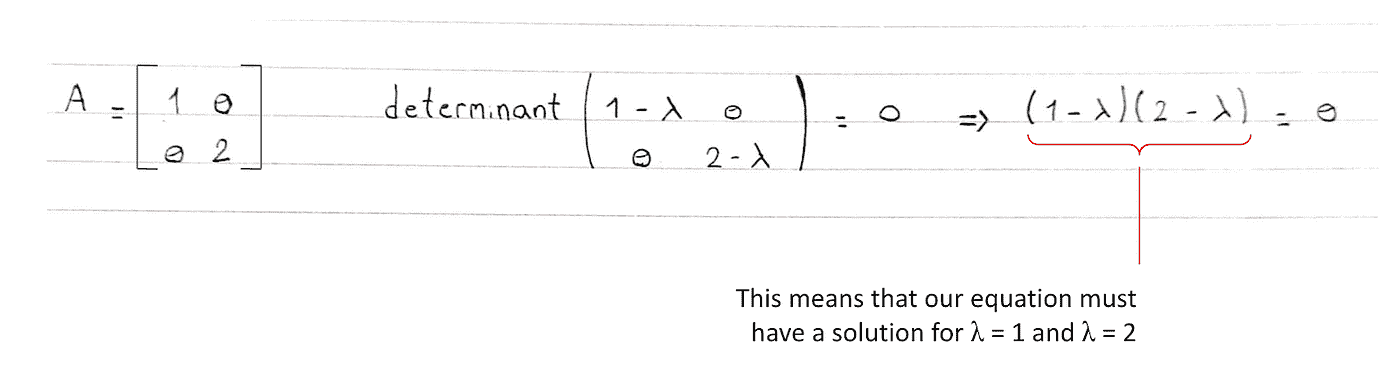 A = [1 0 0 2] determinant (1 - λ 0 0 2 - λ) = 0 => (1 - λ)(2 - λ) = 0
This means that our equation must
have a solution for λ = 1 and λ = 2